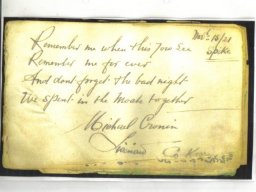 Nov 15/21
Spike
Remember me when this you See
Remember me for ever
And dont forget the bad night
We Spent in the Moate together
Michael Cronin